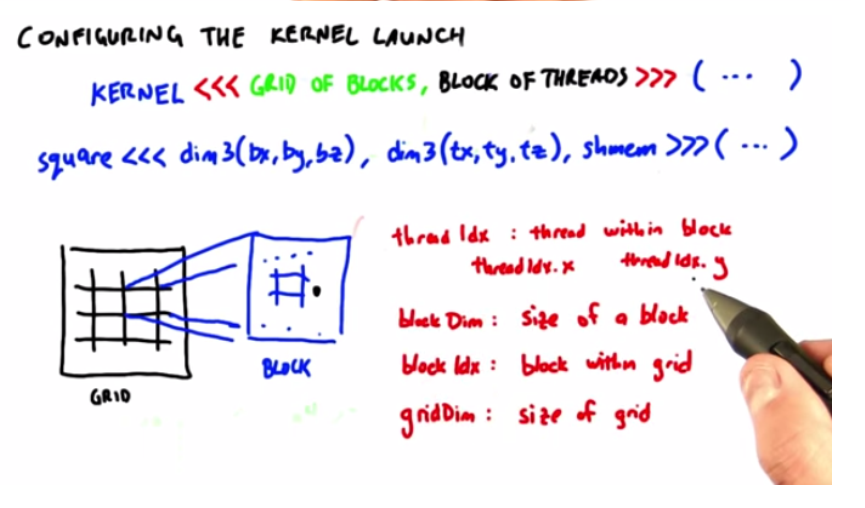 CONFIGURING THE KERNEL LAUNCH
KERNEL <<< GRID OF BLOCKS, BLOCK OF THREADS >>> ( ... )
square <<< dim3(bx,by,bz), dim3(tx,ty,tz), shmem >>>( ... )
thread Idx : thread within block
threadIdx.x threadIdx.y
block Dim : size of a block
block Idx : block within grid
gridDim : size of grid
BLOCK
GRID